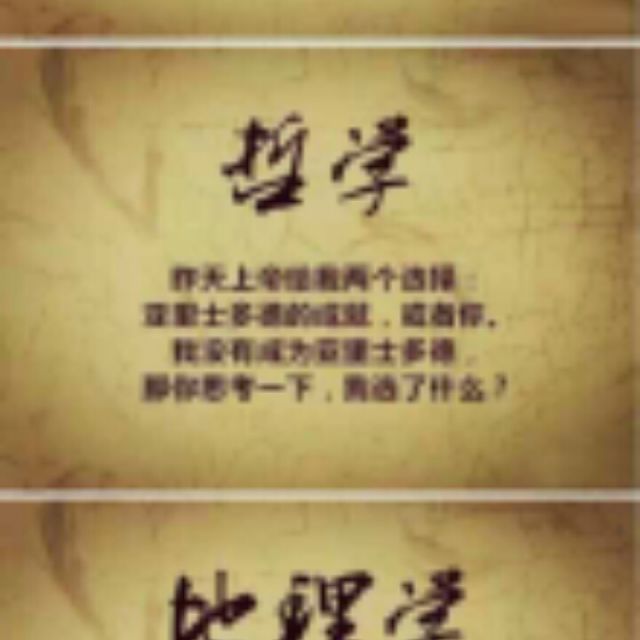 哲学
昨天上帝给我两个选择：
亚里士多德的成就，或者你。
我没有成为亚里士多德，
那你思考一下，我选了什么？
地理学